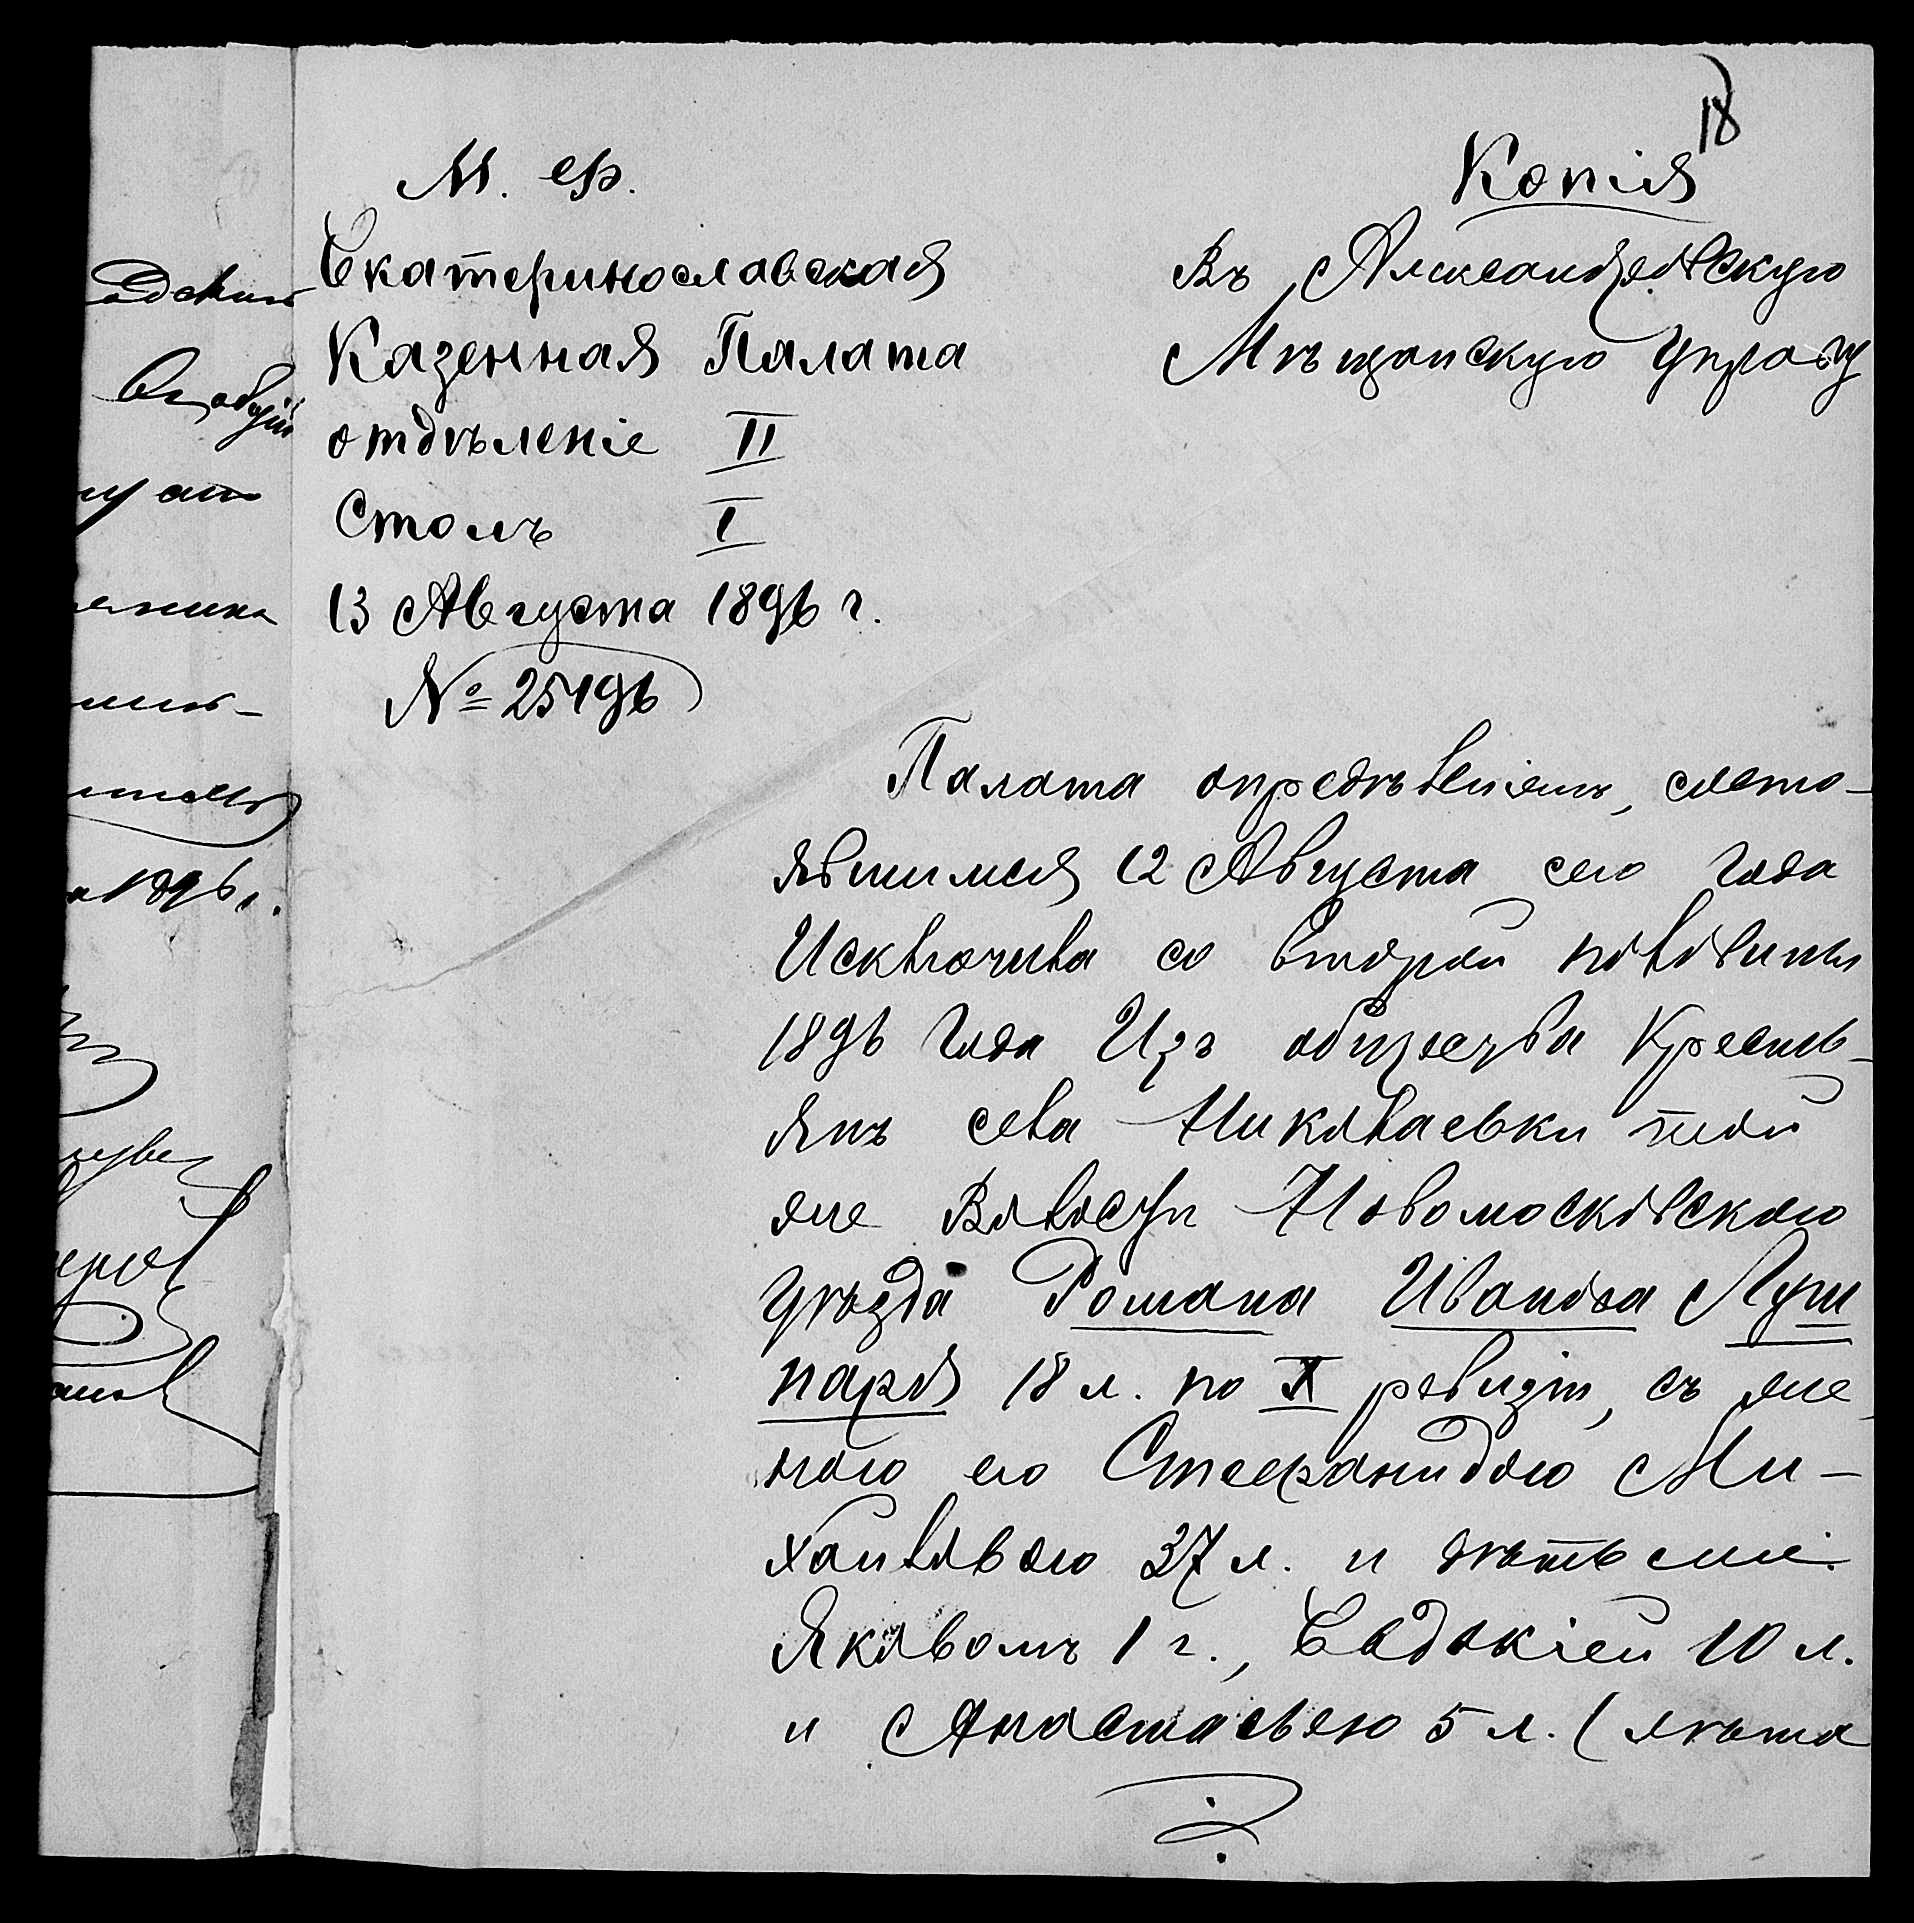 18
М. Ф.
Копія
Екатеринославская
Казенная Палата
отдѣленіе II
Столъ I
13 Августа 1896 г.
№ 25196
Въ Александровскую
Мѣщанскую Управу
Палата опредѣленіемъ, состо-
явшимся 12 Августа сего года
Исключила со второй половины
1896 года Изъ общества Кресть-
янъ села Николаевки той
же Волости Новомосковского
уѣзда Романа Иванова Луш
наря 18 л. по X ревизіи, съ же
ною его Стефанидою Ми-
хайловою 37 л. и дѣтьми:
Яковомъ 1 г., Евдокіей 10 л.
и Анастасьею 5 л. (лѣта
а 1896 г.